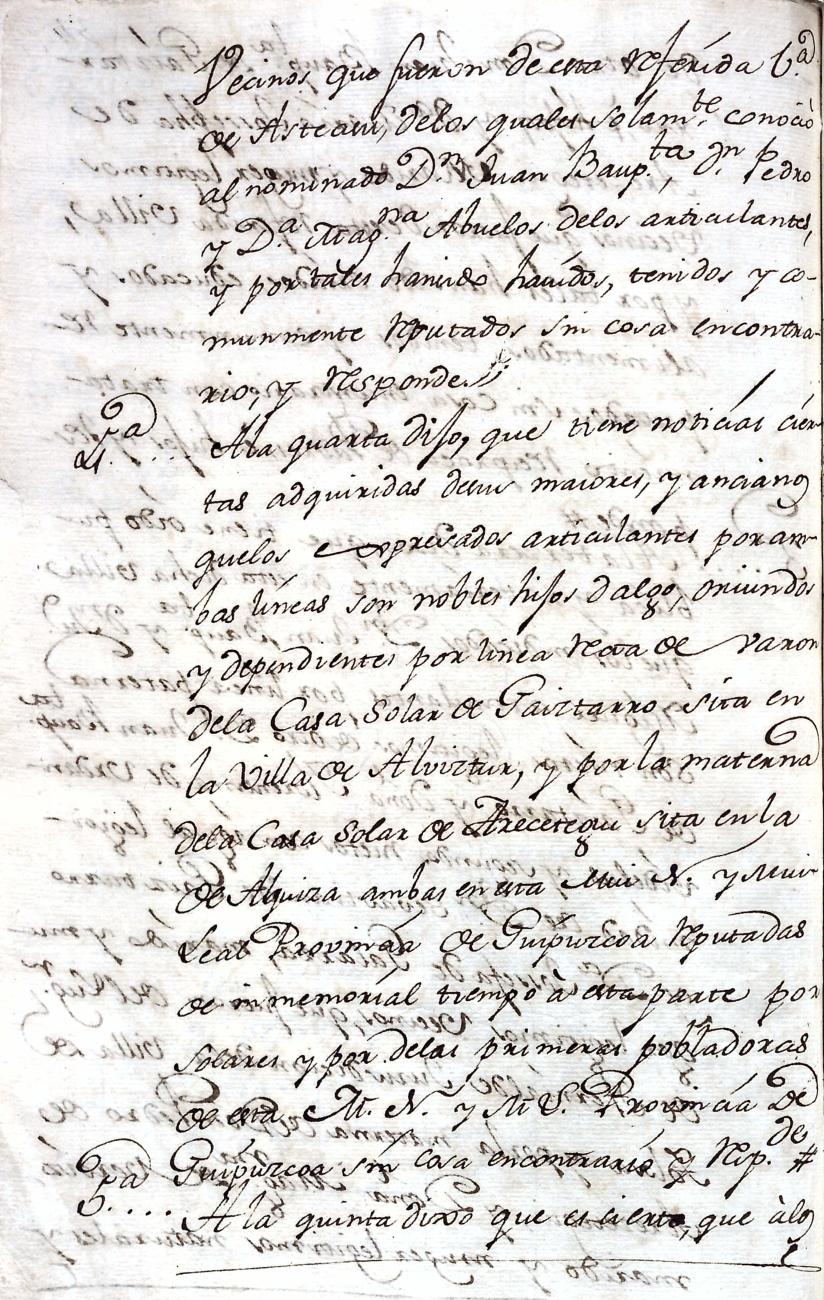 Vecinos que fueron de esta referida V.ª
de Asteasu, delos quales solam.te conoció
al nominado D.n Juan Baup.ta, d.n Pedro
y D.a Mag.na Abuelos delos articulantes,
y por tales han sido havídos, tenidos y co-
munmente reputados sin cosa encontra-
rio, y responde.
4.ª.... Ala quarta dijo, que tiene noticías cíer-
tas adquiridas desus maiores, y ancianos
quelos expresados articulantes por am-
bas líneas son nobles hijos dalgo, oriundos
y dependientes por línea recta de varon
dela Casa Solar de Gaiztarro sita en
la Villa de Alviztur, y por la materna
dela Casa Solar de Arecetegui sita en la
de Alquiza ambas en esta Mui N. y Mui
Leal Provincia de Guipuzcoa reputadas
de inmemoríal tiempo á esta parte por
solares y por delas primeras pobladoras
de esta M. N. y M. L. Provincía De
Guipuzcoa sin cosa encontrarío y resp.de #
5.ª.... A la quinta dixo que es cierto, que àlos